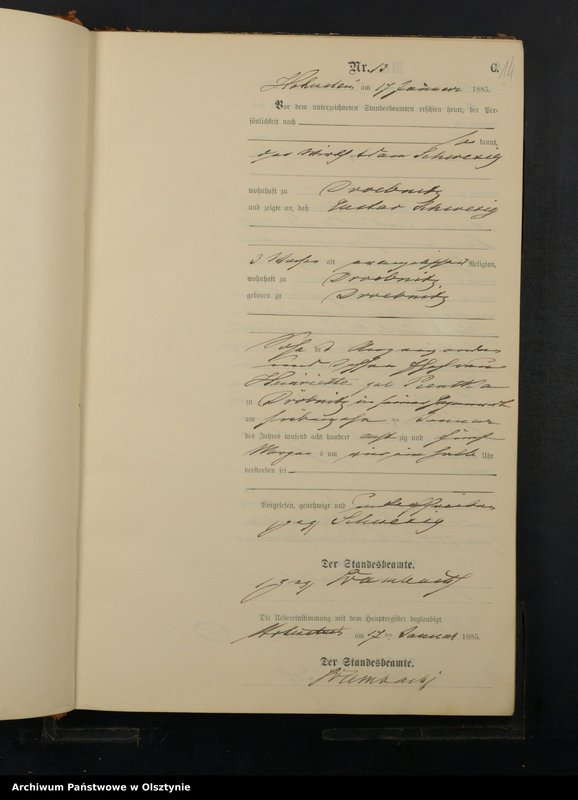 Nr. 13
C.
14
Hohenstein am 17 Januar 1885.
Vor dem unterzeichneten Standesbeamten erschien heute, der Per-
sönlichkeit nach
be kannt,
der Wirth Adam Schwesig
wohnhaft zu Droebnitz
und zeigte an, daß Gustav Schwesig
3 Wochen alt evangelischer Religion,
wohnhaft zu Droebnitz
geboren zu Droebnitz
Sohn d
und dessen Ehefrau
Henriette geb
zu Dröbnitz in seiner Gegenwart
am siebzehn ten Januar
des Jahres tausend acht hundert acht zig und fünf
Morgen s um ein halb Uhr
verstorben sei
Vorgelesen, genehmigt und unterschrieben
gez Schwesig
Der Standesbeamte.
gez
Die Uebereinstimmung mit dem Hauptregister beglaubigt.
Hohenstein am 17 ten Januar 1885.
Der Standesbeamte.
Archiwum Państwowe w Olsztynie